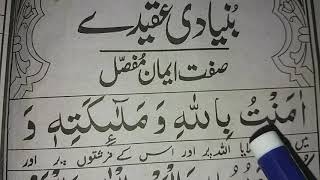 بنیادی عقیدے
صفت ایمان مفصّل
اٰمَنْتُ بِاللّٰهِ وَ مَلٰٓئِکَتِهٖ وَ
میں لایا اللہ پر اور اس کے فرشتوں پر اور